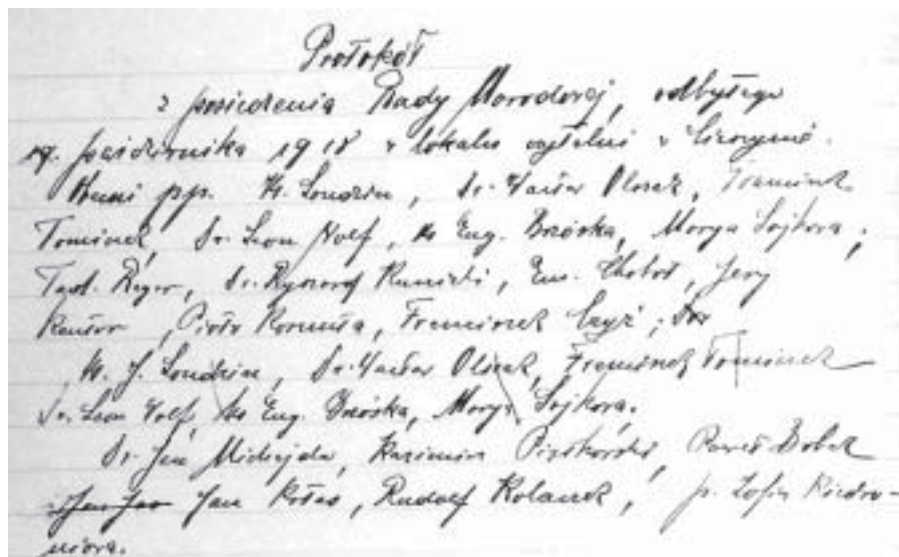 Protokół
z posiedzenia Rady Narodowej, odbytego
19. października 1918 w lokalu czytelni w Cieszynie.
Obecni pp. Ks. Londzin, Dr. Wacław Olszak, Franciszek
Tomiczek, Dr. Leon Wolf, ks Eug. Brzóska, Marya Sojkowa,
Tad. Reger, Dr. Ryszard Kunicki, Em. Chobot, Jerzy
Kantor, Piotr Kornuta, Franciszek Czyż;
Ks. J. Londzin, Dr. Wacław Olszak, Franciszek Tomiczek
Dr. Leon Wolf, ks Eug. Brzóska, Marya Sojkowa.
Dr. Jan Michejda, Kazimierz Piątkowski, Paweł Bobek
Jan Kotas, Rudolf Kolanek, p. Zofia Kirdro-
niowa.